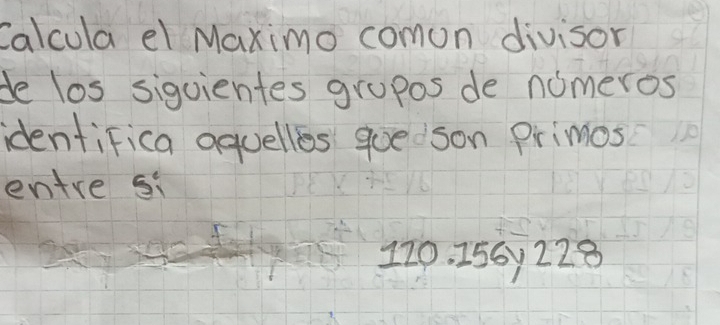 calcula el Maximo comun divisor
de los siguientes grupos de números
identifica aquellos que son primos
entre si
110.156y 228